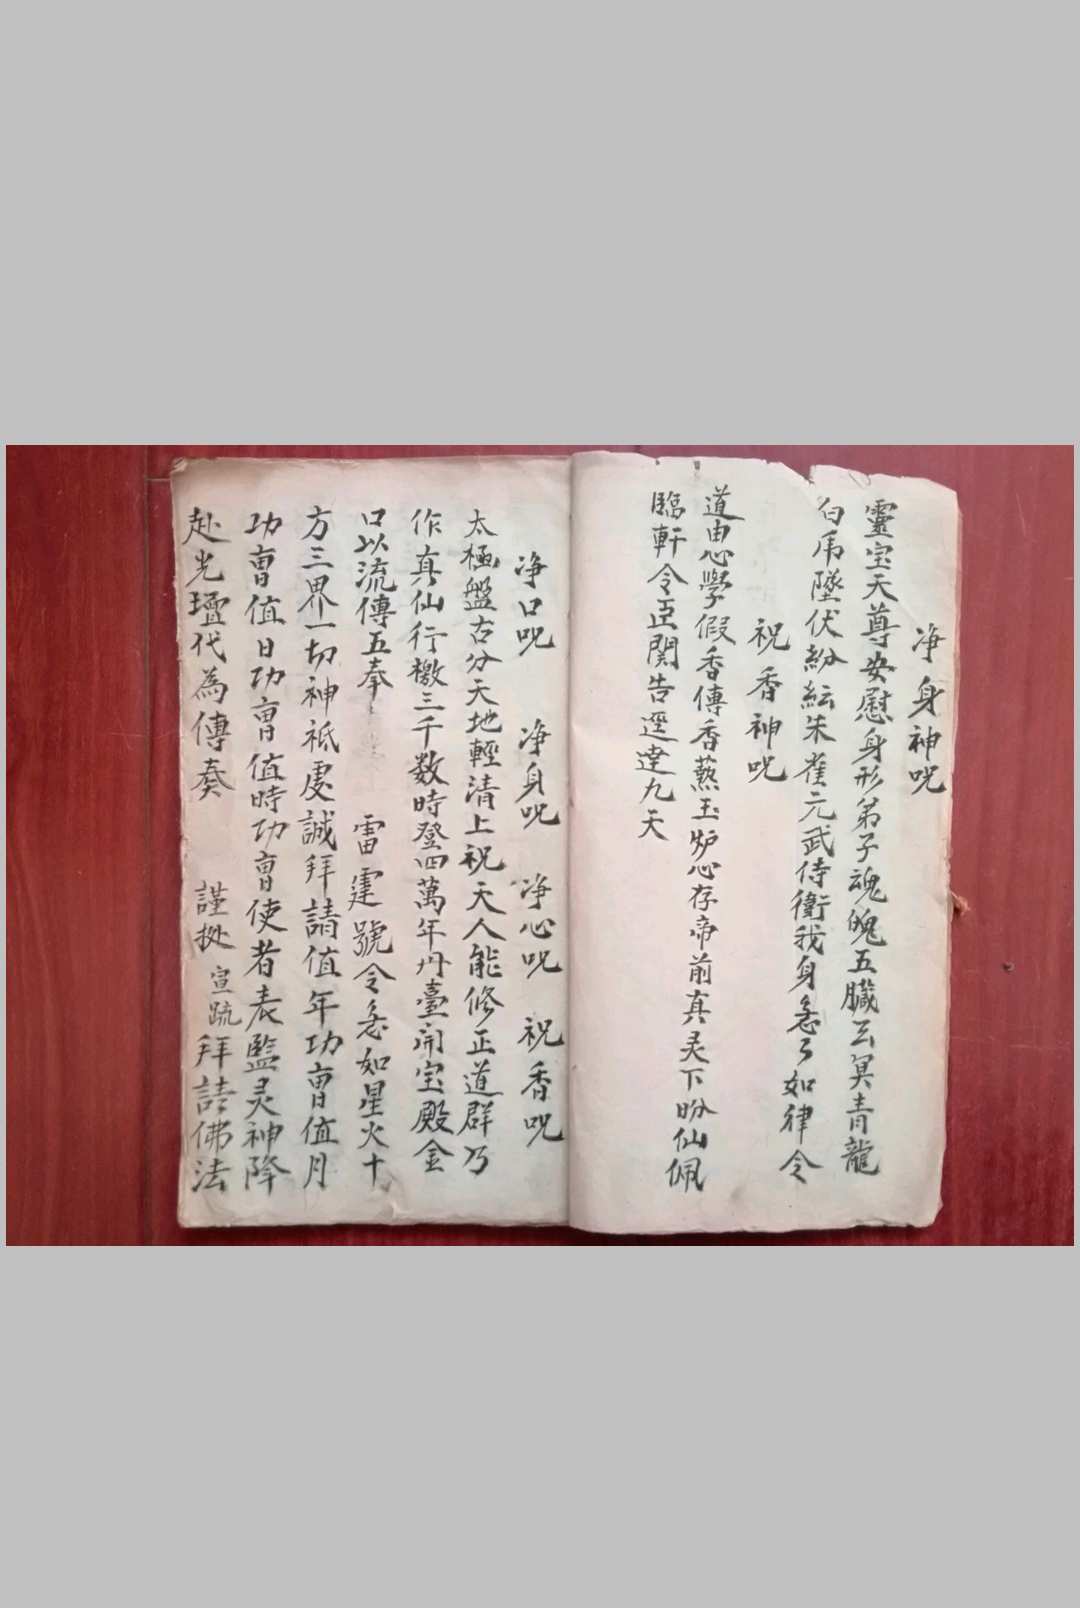 净身神咒
靈宝天尊安慰身形弟子魂魄五臟玄冥青龍
白虎墜伏紛紜朱雀元武侍衛我身急々如律令
祝香神咒
道由心學假香傳香爇玉炉心存帝前真灵下盼仙佩
臨軒令臣関告逕達九天
净口咒 净身咒 净心咒 祝香咒
太極盤古分天地輕清上祝天人能修正道群乃
作真仙行檄三千数時登四萬年丹臺開宝殿金
口以流傳五奉 雷霆號令急如星火十
方三界一切神祇虔誠拜請值年功曹值月
功曹值日功曹值時功曹使者表監灵神降
赴光壇代為傳奏 謹拠 宣疏 拜請佛法